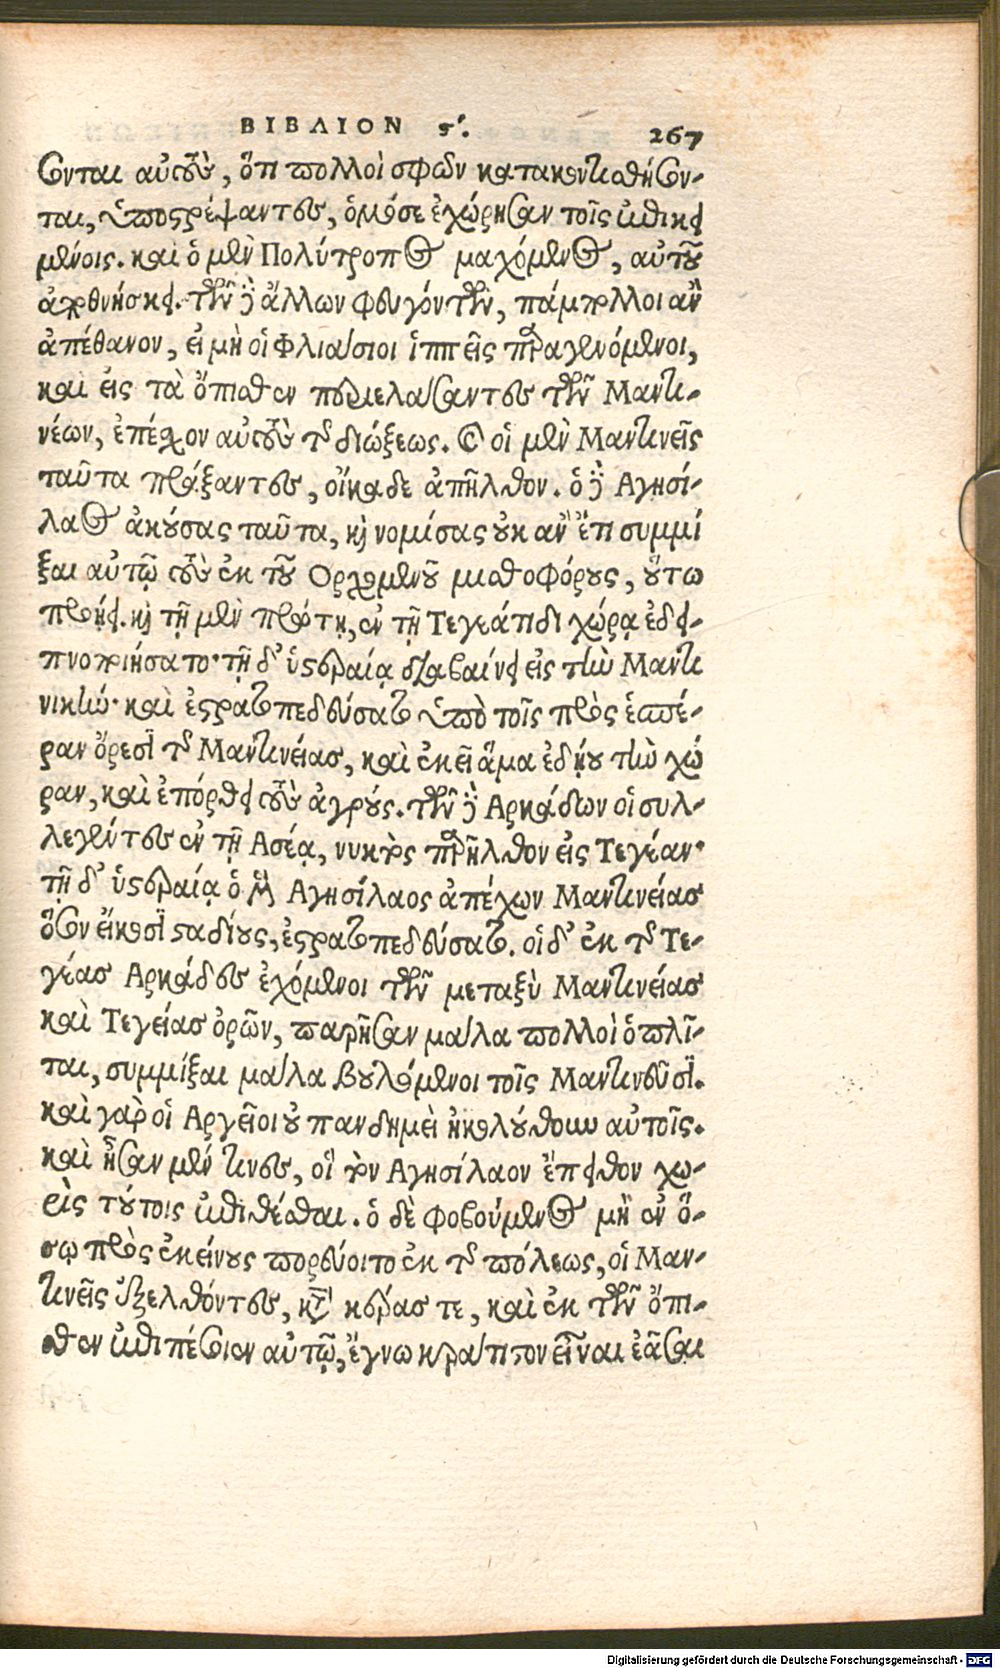 ΒΙΒΛΙΟΝ ϛ΄. 267
σονται αὐτοὺς, ὅτι πολλοὶ σφῶν κατακοντισθήσον-
ται, ὑποστρέψαντες, ὁμόσε ἐχώρησαν τοῖς ἐπικει
μένοις. καὶ ὁ μὲν Πολύτροπος μαχόμενος, αὐτοῦ
ἀποθνήσκει. τῶν δὲ ἄλλων φυγόντων, πάμπολλοι ἂν
ἀπέθανον, εἰ μὴ οἱ Φλιάσιοι ἱππεῖς παραγενόμενοι,
καὶ εἰς τὰ ὄπισθεν περιελάσαντες τῶν Μαντι-
νέων, ἐπέσχον αὐτοὺς τῆς διώξεως. καὶ οἱ μὲν Μαντινεῖς
ταῦτα πράξαντες, οἴκαδε ἀπῆλθον. ὁ δὲ Αγησί-
λαος ἀκούσας ταῦτα, καὶ νομίσας οὐκ ἂν ἔτι συμμί
ξαι αὐτῷ τοὺς ἐκ τοῦ Ορχομενοῦ μισθοφόρους, οὕτω
προῄει. καὶ τῇ μὲν πρώτῃ, ἐν τῇ Τεγεάτιδι χώρᾳ ἐδει-
πνοποιήσατο· τῇ δ' ὑστεραίᾳ διαβαίνει εἰς τὴν Μαντι
νικήν· καὶ ἐστρατοπεδεύσατο ὑπὸ τοῖς πρὸς ἑσπέ-
ραν ὄρεσι τῆς Μαντινείας, καὶ ἐκεῖ ἅμα ἐδῄου τὴν χώ
ραν, καὶ ἐπόρθει τοὺς ἀγρούς. τῶν δὲ Αρκάδων οἱ συλ-
λεγέντες ἐν τῇ Ασέᾳ, νυκτὸς παρῆλθον εἰς Τεγέαν·
τῇ δ' ὑστεραίᾳ ὁ μὲν Αγησίλαος ἀπέχων Μαντινείας
ὅσον εἴκοσι σταδίους, ἐστρατοπεδεύσατο. οἱ δ' ἐκ τῆς Τε-
γέας Αρκάδες ἐχόμενοι τῶν μεταξὺ Μαντινείας
καὶ Τεγείας ὀρῶν, παρῆσαν μάλα πολλοὶ ὁπλῖ-
ται, συμμίξαι μάλα βουλόμενοι τοῖς Μαντινεῦσι.
καὶ γὰρ οἱ Αργεῖοι οὐ πανδημεὶ ἠκολούθουν αὐτοῖς.
καὶ ἦσαν μέν τινες, οἳ τὸν Αγησίλαον ἔπειθον χω-
ρὶς τούτοις ἐπιθέσθαι. ὁ δὲ φοβούμενος μὴ ἐν ὅ-
σῳ πρὸς ἐκείνους πορεύοιτο ἐκ τῆς πόλεως, οἱ Μαν-
τινεῖς ἐξελθόντες, κατὰ κέρας τε, καὶ ἐκ τῶν ὄπι-
σθεν ἐπιπέσοιεν αὐτῷ, ἔγνω κράτιστον εἶναι ἐᾶσαι
Digitalisierung gefördert durch die Deutsche Forschungsgemeinschaft - DFG